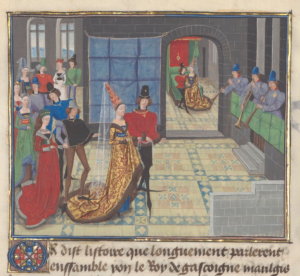 Or dist listoire que longuement parlerent
enssamble yon le Roy de gascoigne maulgis